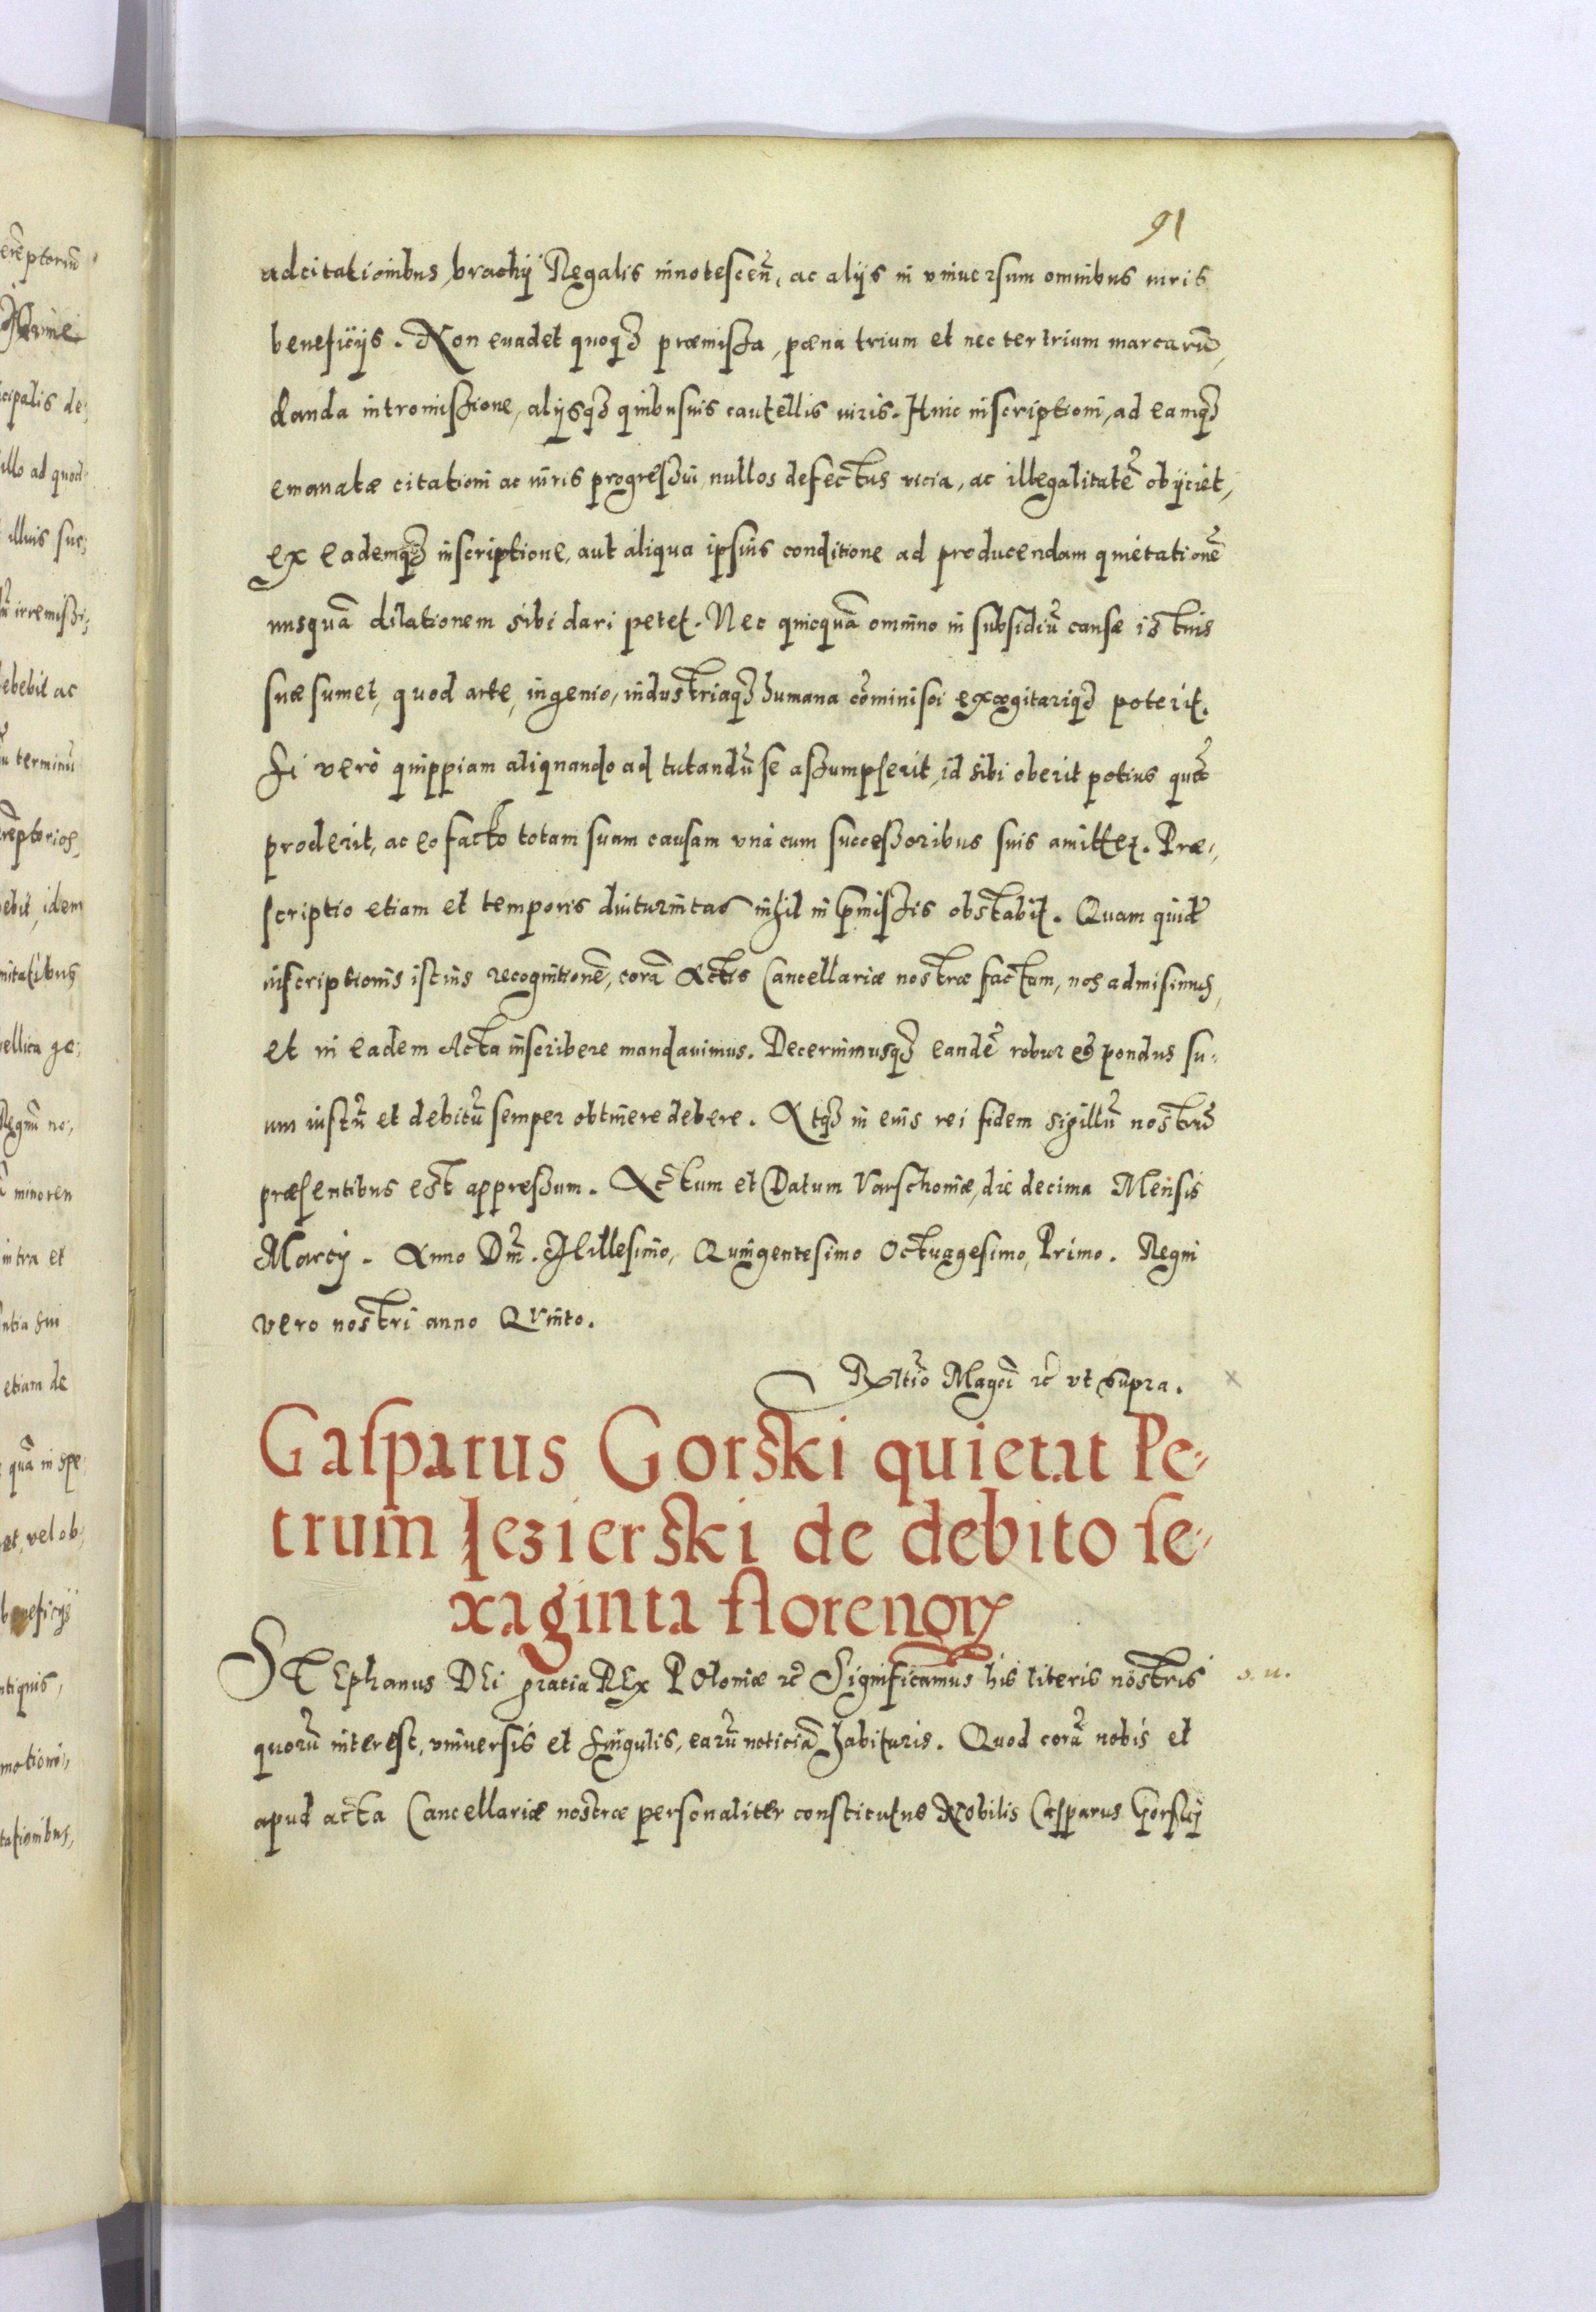 91
adcitationibus, brachij Regalis innotescen̄, ac alijs in vniuersum omnibus iuris
beneficijs. Non euadet quoqȝ præmissa, pœna trium et nec ter trium marcarū,
danda intromissione, alijsqȝ quibusuis cautellis iuris. Huic inscriptioni, ad eamqȝ
emanatæ citationi ac iuris progressui, nullos defectus vicia, ac illegalitatē obijciet,
ex eademqȝ inscriptione, aut aliqua ipsius conditione ad producendam quietationē
nusquā dilationem sibi dari petet. Nec quicquā omnino in subsidiū causæ istius
suæ sumet, quod arte, ingenio, industriaqȝ humana cōminisci excogitariqȝ poterit.
Si verò quippiam aliquando ad tutandū se assumpserit, id sibi oberit potius quā
proderit, ac eo facto totam suam causam vnà cum successoribus suis amittet. Præ-
scriptio etiam et temporis diuturnitas nihil in p̄missis obstabit. Quam quidē
inscriptionis istius recognitionē, corā Actis Cancellariæ nostræ factam, nos admisimus,
et in eadem Acta inscribere mandauimus. Decernimusqȝ eandē robur et pondus su-
um iustū et debitū semper obtinere debere. Atqȝ in eius rei fidem sigillū nostrū
præsentibus est appressum. Actum et Datum Varschouiæ, die decima Mensis
Marcij. Anno Dn̄i. Millesimo, Quingentesimo Octuagesimo, Primo. Regni
vero nostri anno Quinto.
Rltio Magci ꝛc̄ vt supra.
Gasparus Gorski quietat Pe-
trum Jezierski de debito se-
xaginta florenorꝝ
STEphanus DEi gratia REx POloniæ ꝛc̄ Significamus his literis nostris s. u.
quorū interest, vniuersis et singulis, earū noticiā habituris. Quod corā nobis et
apud acta Cancellariæ nostræ personaliter constitutus Nobilis Casparus Gorskij